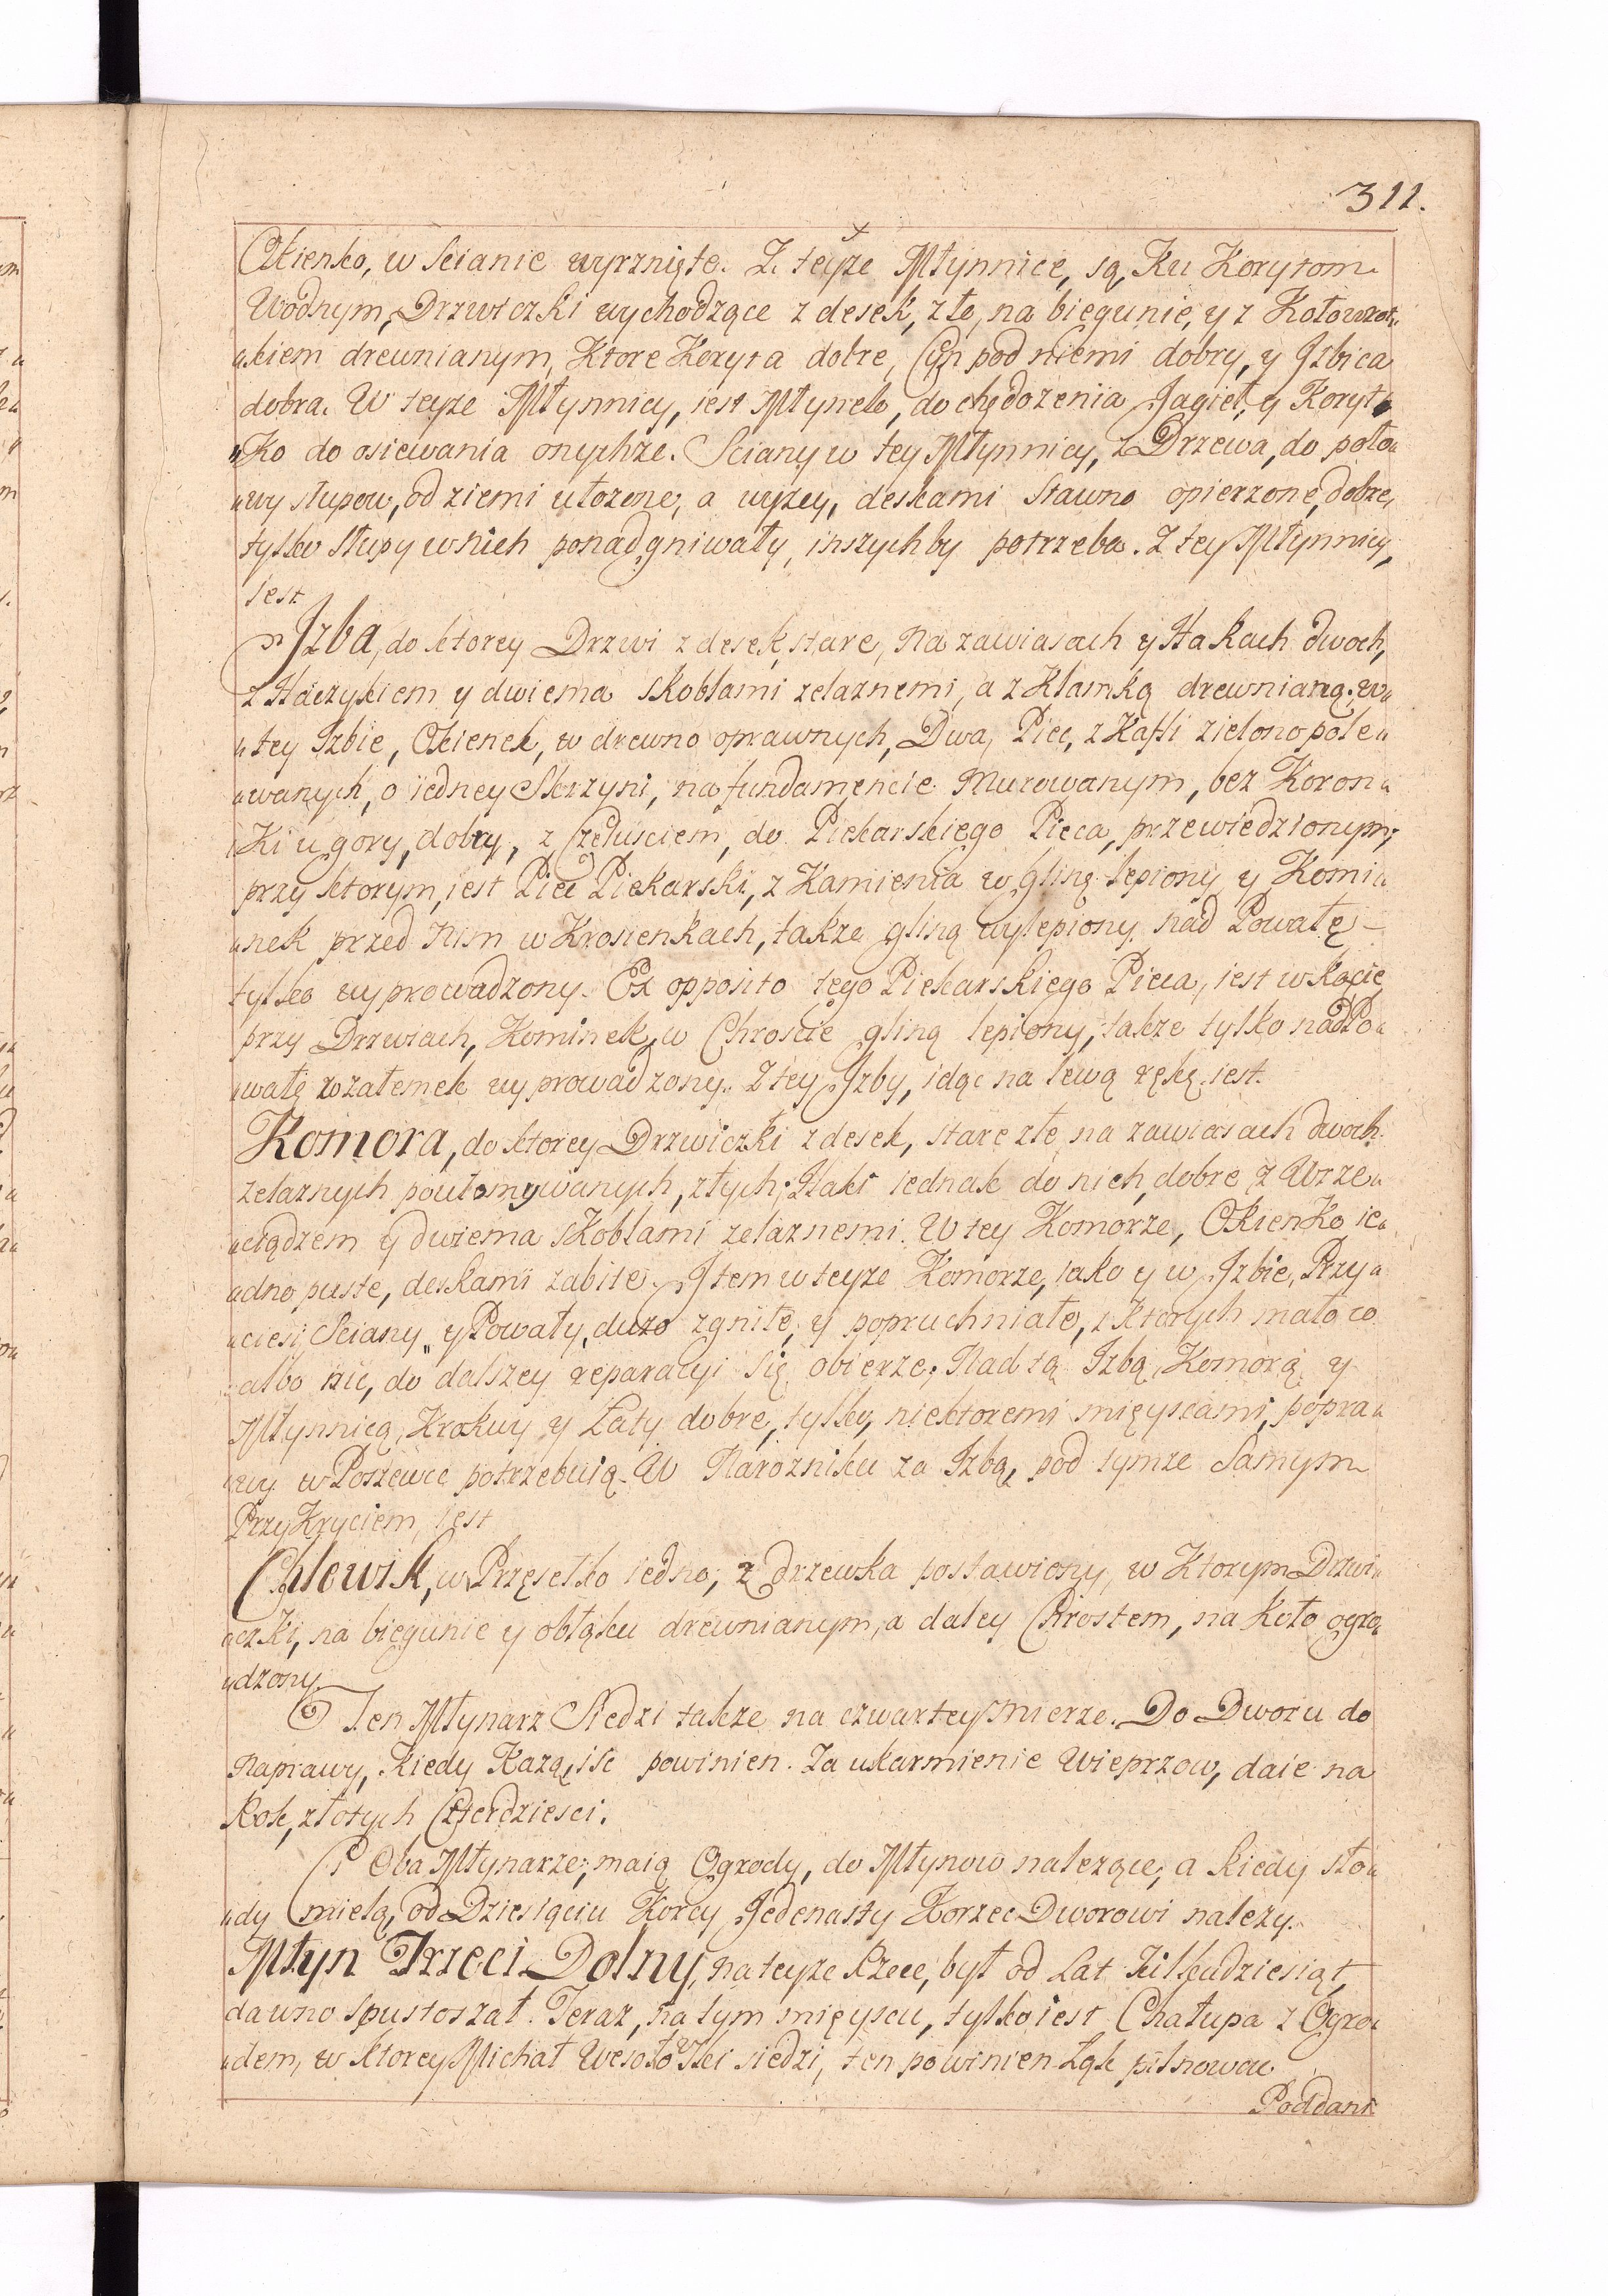 311.
Okienko, w Scianie wyrznięte. Z teyże Młynnice, są, Ku Korytom
Wodnym, Drzwiczki wychodzące z desek, złe, na biegunie, y z Kołowrot„
„kiem drewnianym, Ktore Koryta dobre, Cyn pod niemi dobry, y Jzbica
dobra. W teyże Młynnicy, iest Młynek, do chędożenia Jagieł, y Koryt„
„Ko do osiewania onychże. Sciany w tey Młynnicy, z Drzewa, do poło„
„wy słupow, od ziemi ułożone, a wyżey, deskami stawno opierzone, dobre,
tylko słupy w nich ponadgniwały, inszych by potrzeba. Z tey Młynnicy,
iest
Jzba, do ktorey Drzwi z desek, stare, na zawiasach y Hakach dwoch,
z Haczykiem y dwiema skoblami żelaznemi, a z Klamką drewnianą. w„
„tey Jzbie, Okienek, w drewno oprawnych, Dwa, Piec, z Kafli zielono pole„
„wanych, o iedney Skrzyni, na fundamencie Murowanym, bez Koron„
„Ki u gory, dobry, z Czeluściem, do Piekarskiego Pieca, przewiedzionym;
przy ktorym, iest Piec Piekarski, z Kamienia w glinę lepiony y Komi„
„nek przed nim w Krosienkach, także gliną wylepiony, nad Powałę
tylko wyprowadzony. Ex opposito tego Piekarskiego Pieca, iest w kącie,
przy Drzwiach, Kominek, w Chroście gliną lepiony, także tylko nad Po„
„wałę w załemek wyprowadzony. Z tey Jzby, idąc na lewą rękę, iest.
Komora, do ktorey Drzwiczki z desek, stare złe, na zawiasach dwoch
żelaznych poułomywanych, złych; Haki iednak do nich, dobre, z Wrze„
„ciądzem y dwiema skoblami żelaznemi. W tey Komorze, Okienko ie„
„dno puste, deskami zabite. Jtem w teyże Komorze, iako y w Jzbie, Przy„
„ciesi, Sciany, y Powały, dużo zgniłe, y popruchniałe, z Ktorych mało co
albo nic, do dalszey reparacyi się obierze; Nad tą Jzbą, Komorą, y
Młynnicą, Krokwy y Łaty dobre, tylko, niektoremi mieyscami, popra„
„wy w Poszewce potrzebuią. W Narożniku za Jzbą, pod tymże Samym
PrzyKryciem, iest
Chlewik, w Przęsełko iedno, z drzewka postawiony, w Ktorym Drzwi„
„czki, na biegunie y obłąku drewnianym, a daley Chrostem, na Koło ogro„
„dzony.
Ten Młynarz Siedzi także na czwartey mierze. Do Dworu do
Naprawy, kiedy Każą, iść powinien. Za ukarmienie Wieprzow, daie na
Rok, złotych Czterdziesci.
Oba Młynarze, maią Ogrody, do Młynow należące, a kiedy sło„
„dy mielą, od Dziesiąciu Korcy Jedenasty Korzec Dworowi należy.
Młyn Trzeci Dolny, na teyże Rzece, był od Lat Kilkudziesiąt,
dawno spustoszał. Teraz, na tym mieyscu, tylko iest Chałupa z Ogro„
„dem, w ktorey Michał Wesołowski siedzi, ten powinien Łąk pilnować
Poddani